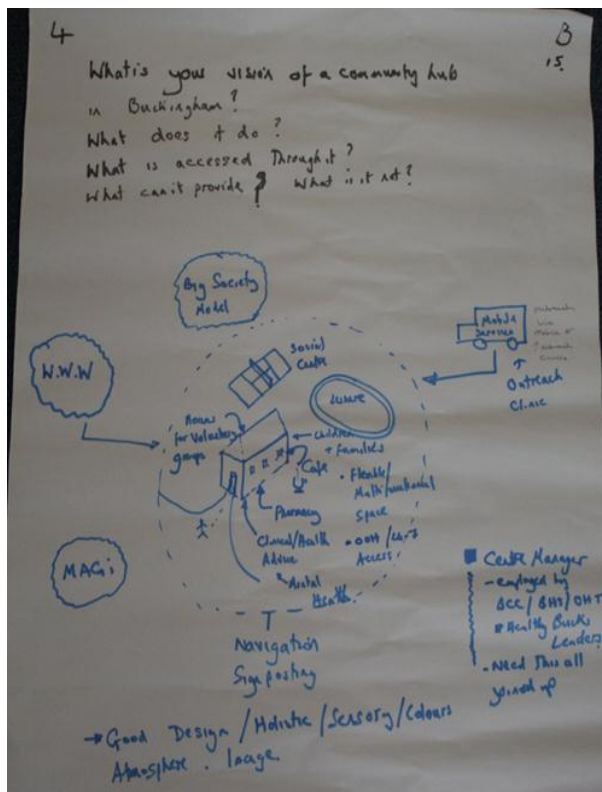 4
B
15.
What is your vision of a community hub
in Buckingham?
What does it do?
What is accessed through it?
What can it provide? What is it not?
Big Society
Model
W.W.W
Social
Centre
Mobile
Services
Outreach
Clinic
Leisure
Rooms
for Voluntary
groups
Children
+ Families
Cafe
Pharmacy
Clinical/Health
Advice
Mental
Health
• Flexible/
Multifunctional
Space
• OOH /
Access
MAGi
Navigation
Signposting
Centre Manager
- employed by
BCC/BHT/OHT
Healthy Bucks
Leaders
- Need This all
joined up
→ Good Design / Holistic / Sensory / Colours
Atmosphere . Image